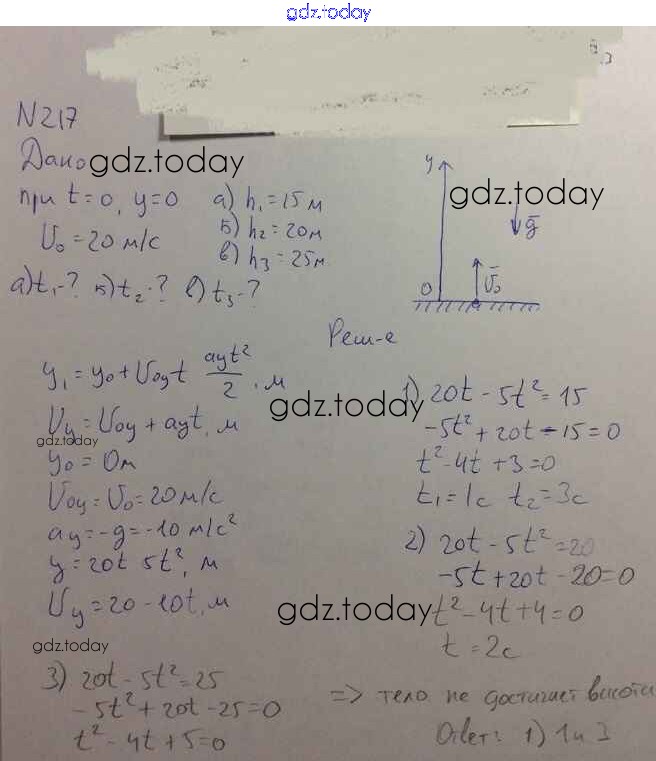 gdz.today
N217
Дано gdz.today
при t=0, y=0 а) h₁=15м
U₀=20м/с б) h₂=20м
в) h₃=25м
а)t₁-? б)t₂-? в)t₃-?
y
gdz.today
g̅
0 U̅₀
Реш-е
y₁=y₀+U₀yt ayt²/2, м
Uy=U₀y+ayt, м
gdz.today
gdz.today
y₀=0м
U₀y=U₀=20м/с
ay=-g=-10м/с²
y=20t 5t², м
Uy=20-10t, м
1) 20t-5t²=15
-5t²+20t-15=0
t²-4t+3=0
t₁=1с t₂=3с
2) 20t-5t²=20
-5t+20t-20=0
gdz.today t²-4t+4=0
t=2с
gdz.today
3) 20t-5t²=25
-5t²+20t-25=0
t²-4t+5=0
=> тело не достигает высоты
Ответ: 1) 1 и 3